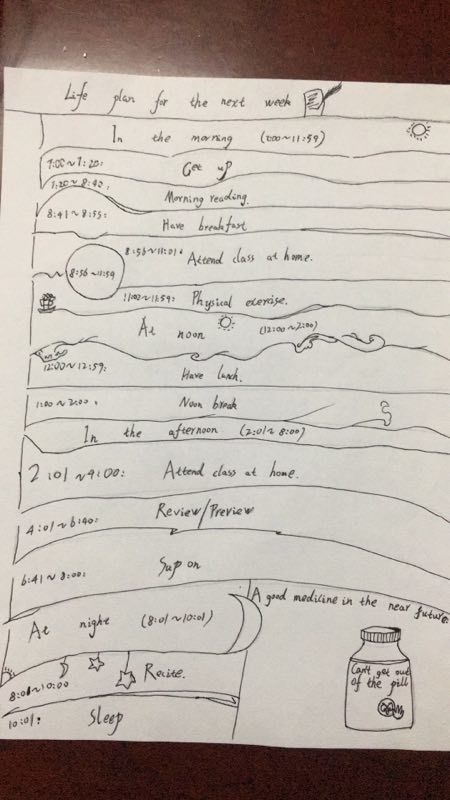 Life plan for the next week
In the morning (7:00~11:59)
7:00~7:20: Get up
7:20~8:40: Morning reading.
8:41~8:55: Have breakfast
8:56~11:01: Attend class at home.
8:56~11:59
11:02~11:59: Physical exercise.
At noon (12:00~2:00)
12:00~12:59: Have lunch.
1:00~2:00: Noon break
In the afternoon (2:01~8:00)
2:01~4:00: Attend class at home.
4:01~6:40: Review/Preview
6:41~8:00: Sup on
A good medicine in the near future.
At night (8:01~10:01)
Can't get out
of the pill
8:01~10:00 Recite.
10:01: Sleep